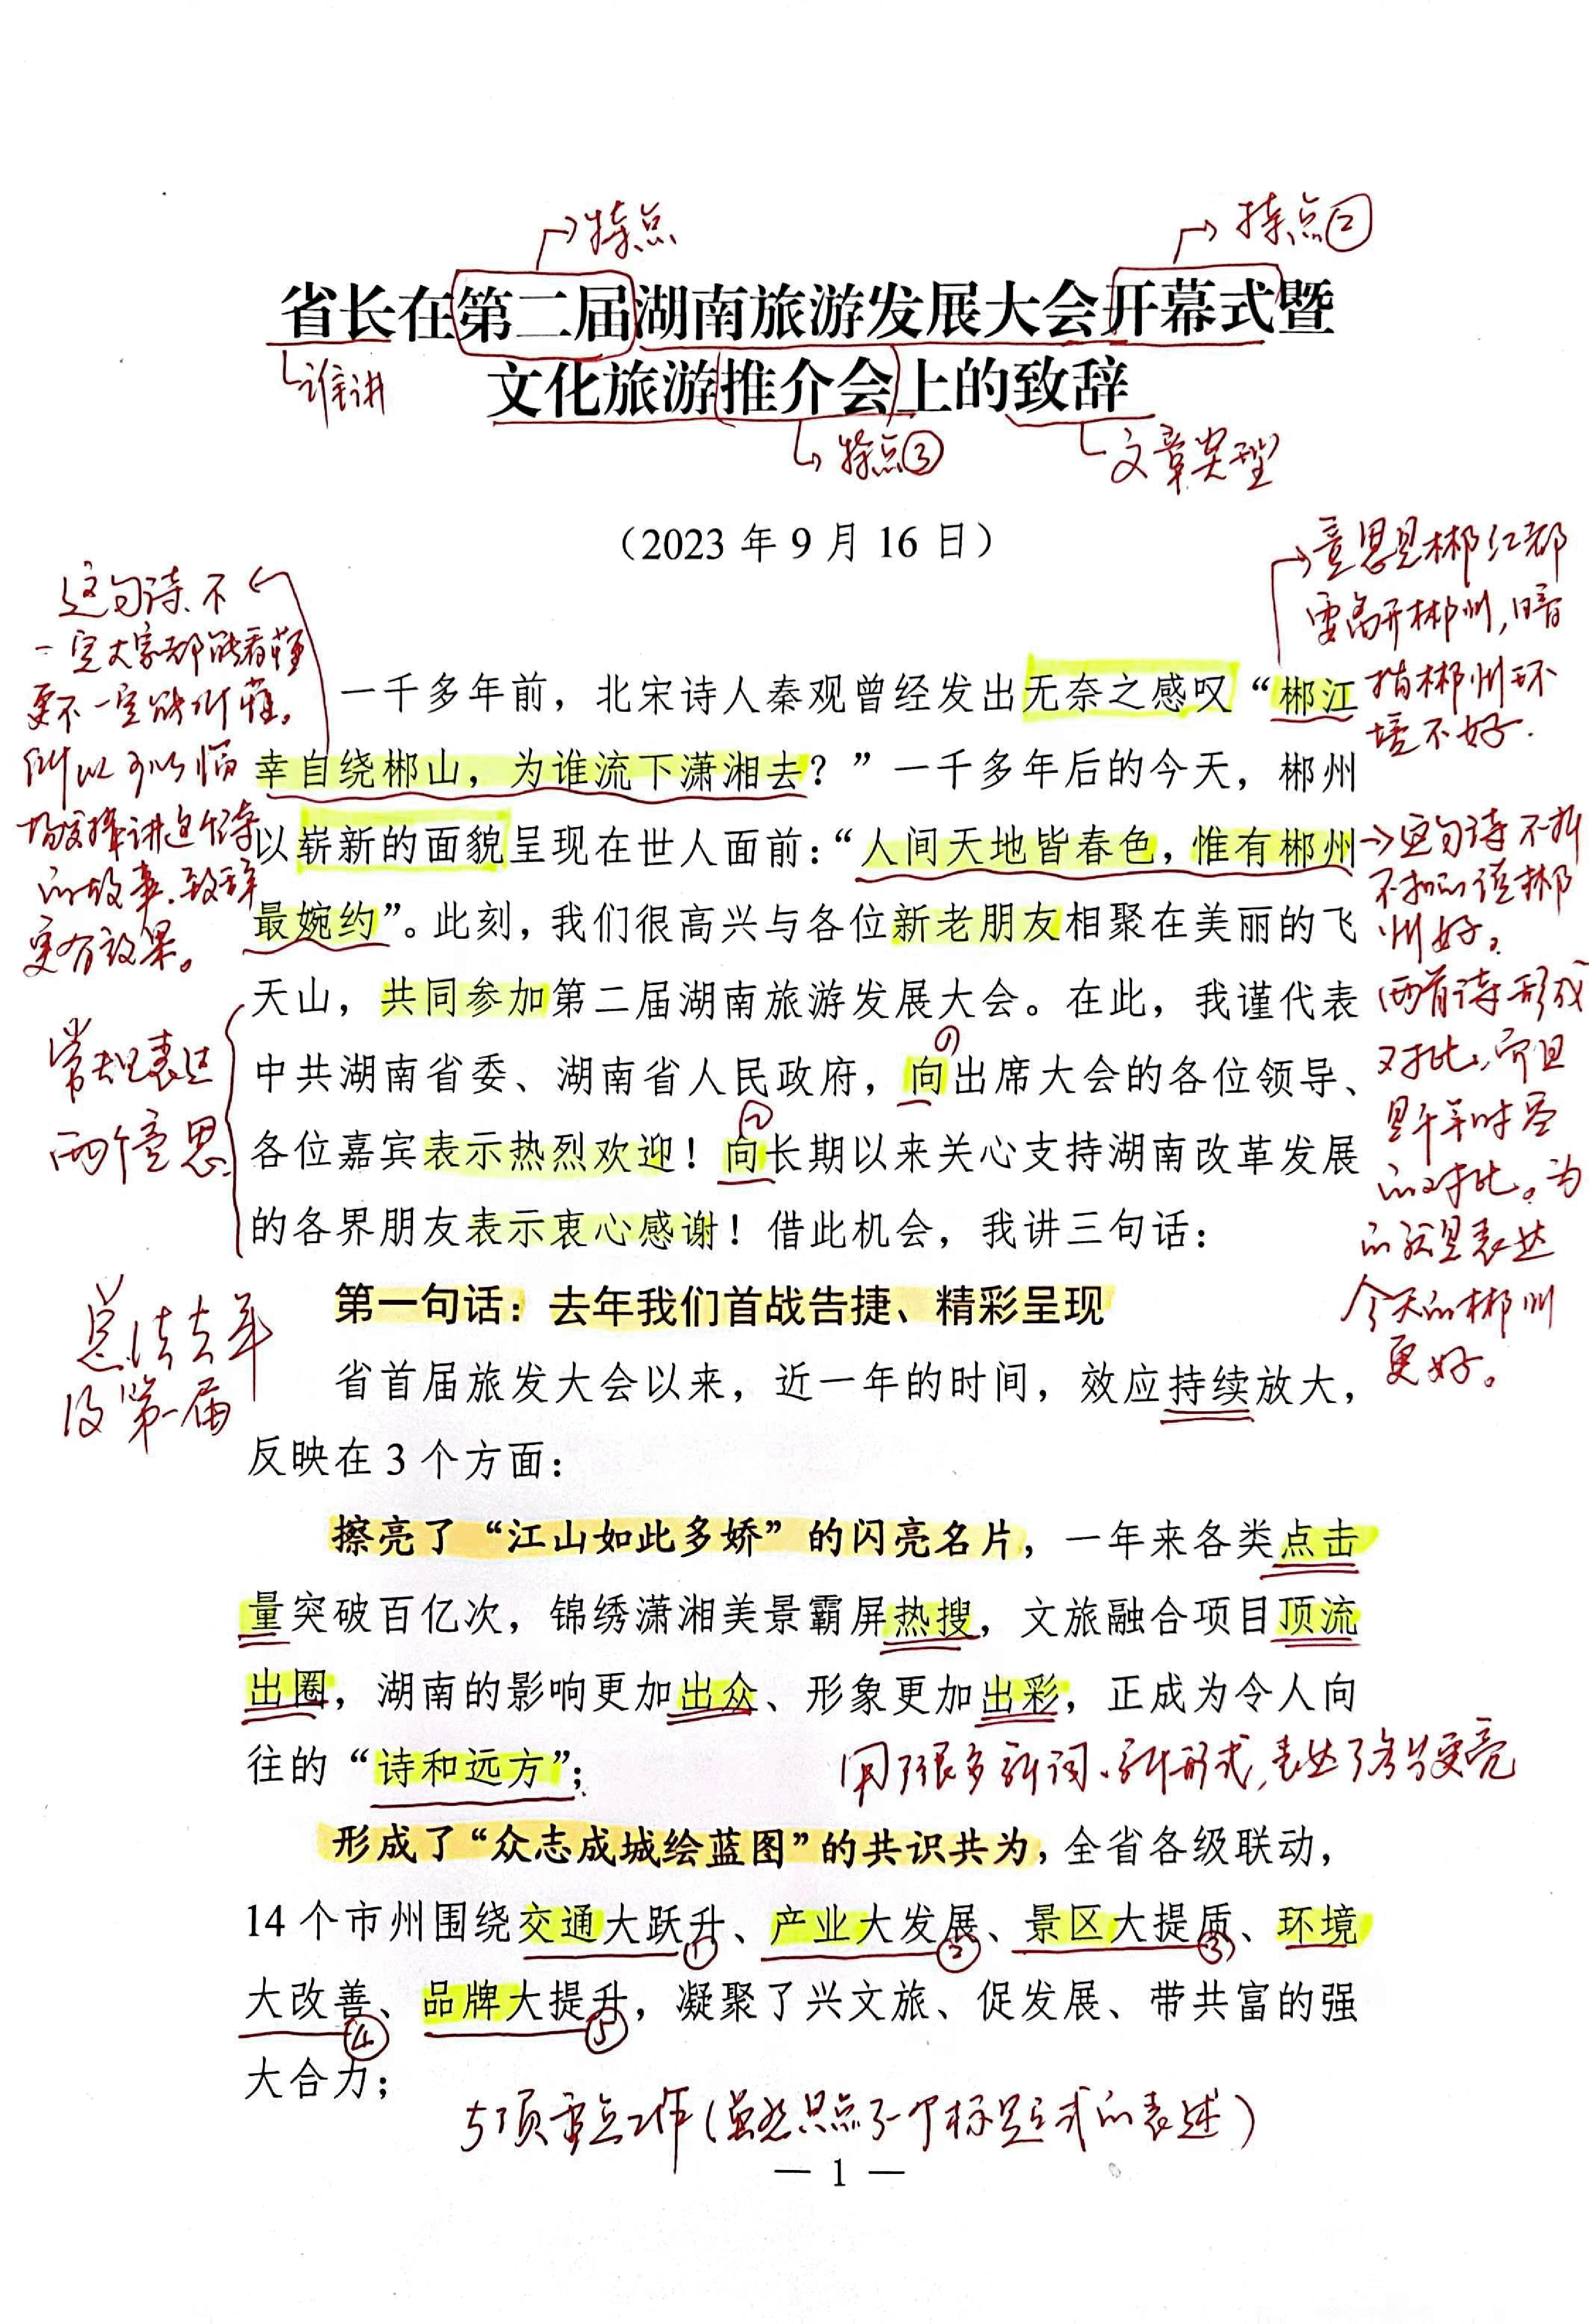 特点
特点②
省长在第二届湖南旅游发展大会开幕式暨
谁讲
文化旅游推介会上的致辞
特点③
文章类型
（2023 年 9 月 16 日）
意思是郴江都
要离开郴州，暗
指郴州环
境不好.
这句诗不
一定大家都能看懂
更不一定能听懂。
所以可以临
场发挥讲这个诗
的故事.致辞
更有效果。
一千多年前，北宋诗人秦观曾经发出无奈之感叹“郴江
幸自绕郴山，为谁流下潇湘去？”一千多年后的今天，郴州
以崭新的面貌呈现在世人面前：“人间天地皆春色，惟有郴州
最婉约”。此刻，我们很高兴与各位新老朋友相聚在美丽的飞
天山，共同参加第二届湖南旅游发展大会。在此，我谨代表
中共湖南省委、湖南省人民政府，向出席大会的各位领导、
各位嘉宾表示热烈欢迎！向长期以来关心支持湖南改革发展
的各界朋友表示衷心感谢！借此机会，我讲三句话：
这句诗不折
不扣的读郴
州好。
两首诗形成
对比，而且
是千年时空
的对比。为
的就是表达
今天的郴州
更好。
常规表达
两个意思
第一句话：去年我们首战告捷、精彩呈现
总结去年
及第一届
省首届旅发大会以来，近一年的时间，效应持续放大，
反映在 3 个方面：
擦亮了“江山如此多娇”的闪亮名片，一年来各类点击
量突破百亿次，锦绣潇湘美景霸屏热搜，文旅融合项目顶流
出圈，湖南的影响更加出众、形象更加出彩，正成为令人向
往的“诗和远方”；
用了很多新词、新形式，表达了名片更亮
形成了“众志成城绘蓝图”的共识共为，全省各级联动，
14 个市州围绕交通大跃升①、产业大发展②、景区大提质③、环境
大改善④、品牌大提升⑤，凝聚了兴文旅、促发展、带共富的强
大合力；
5项重点工作（虽然只点了一个标题式的表述）
— 1 —